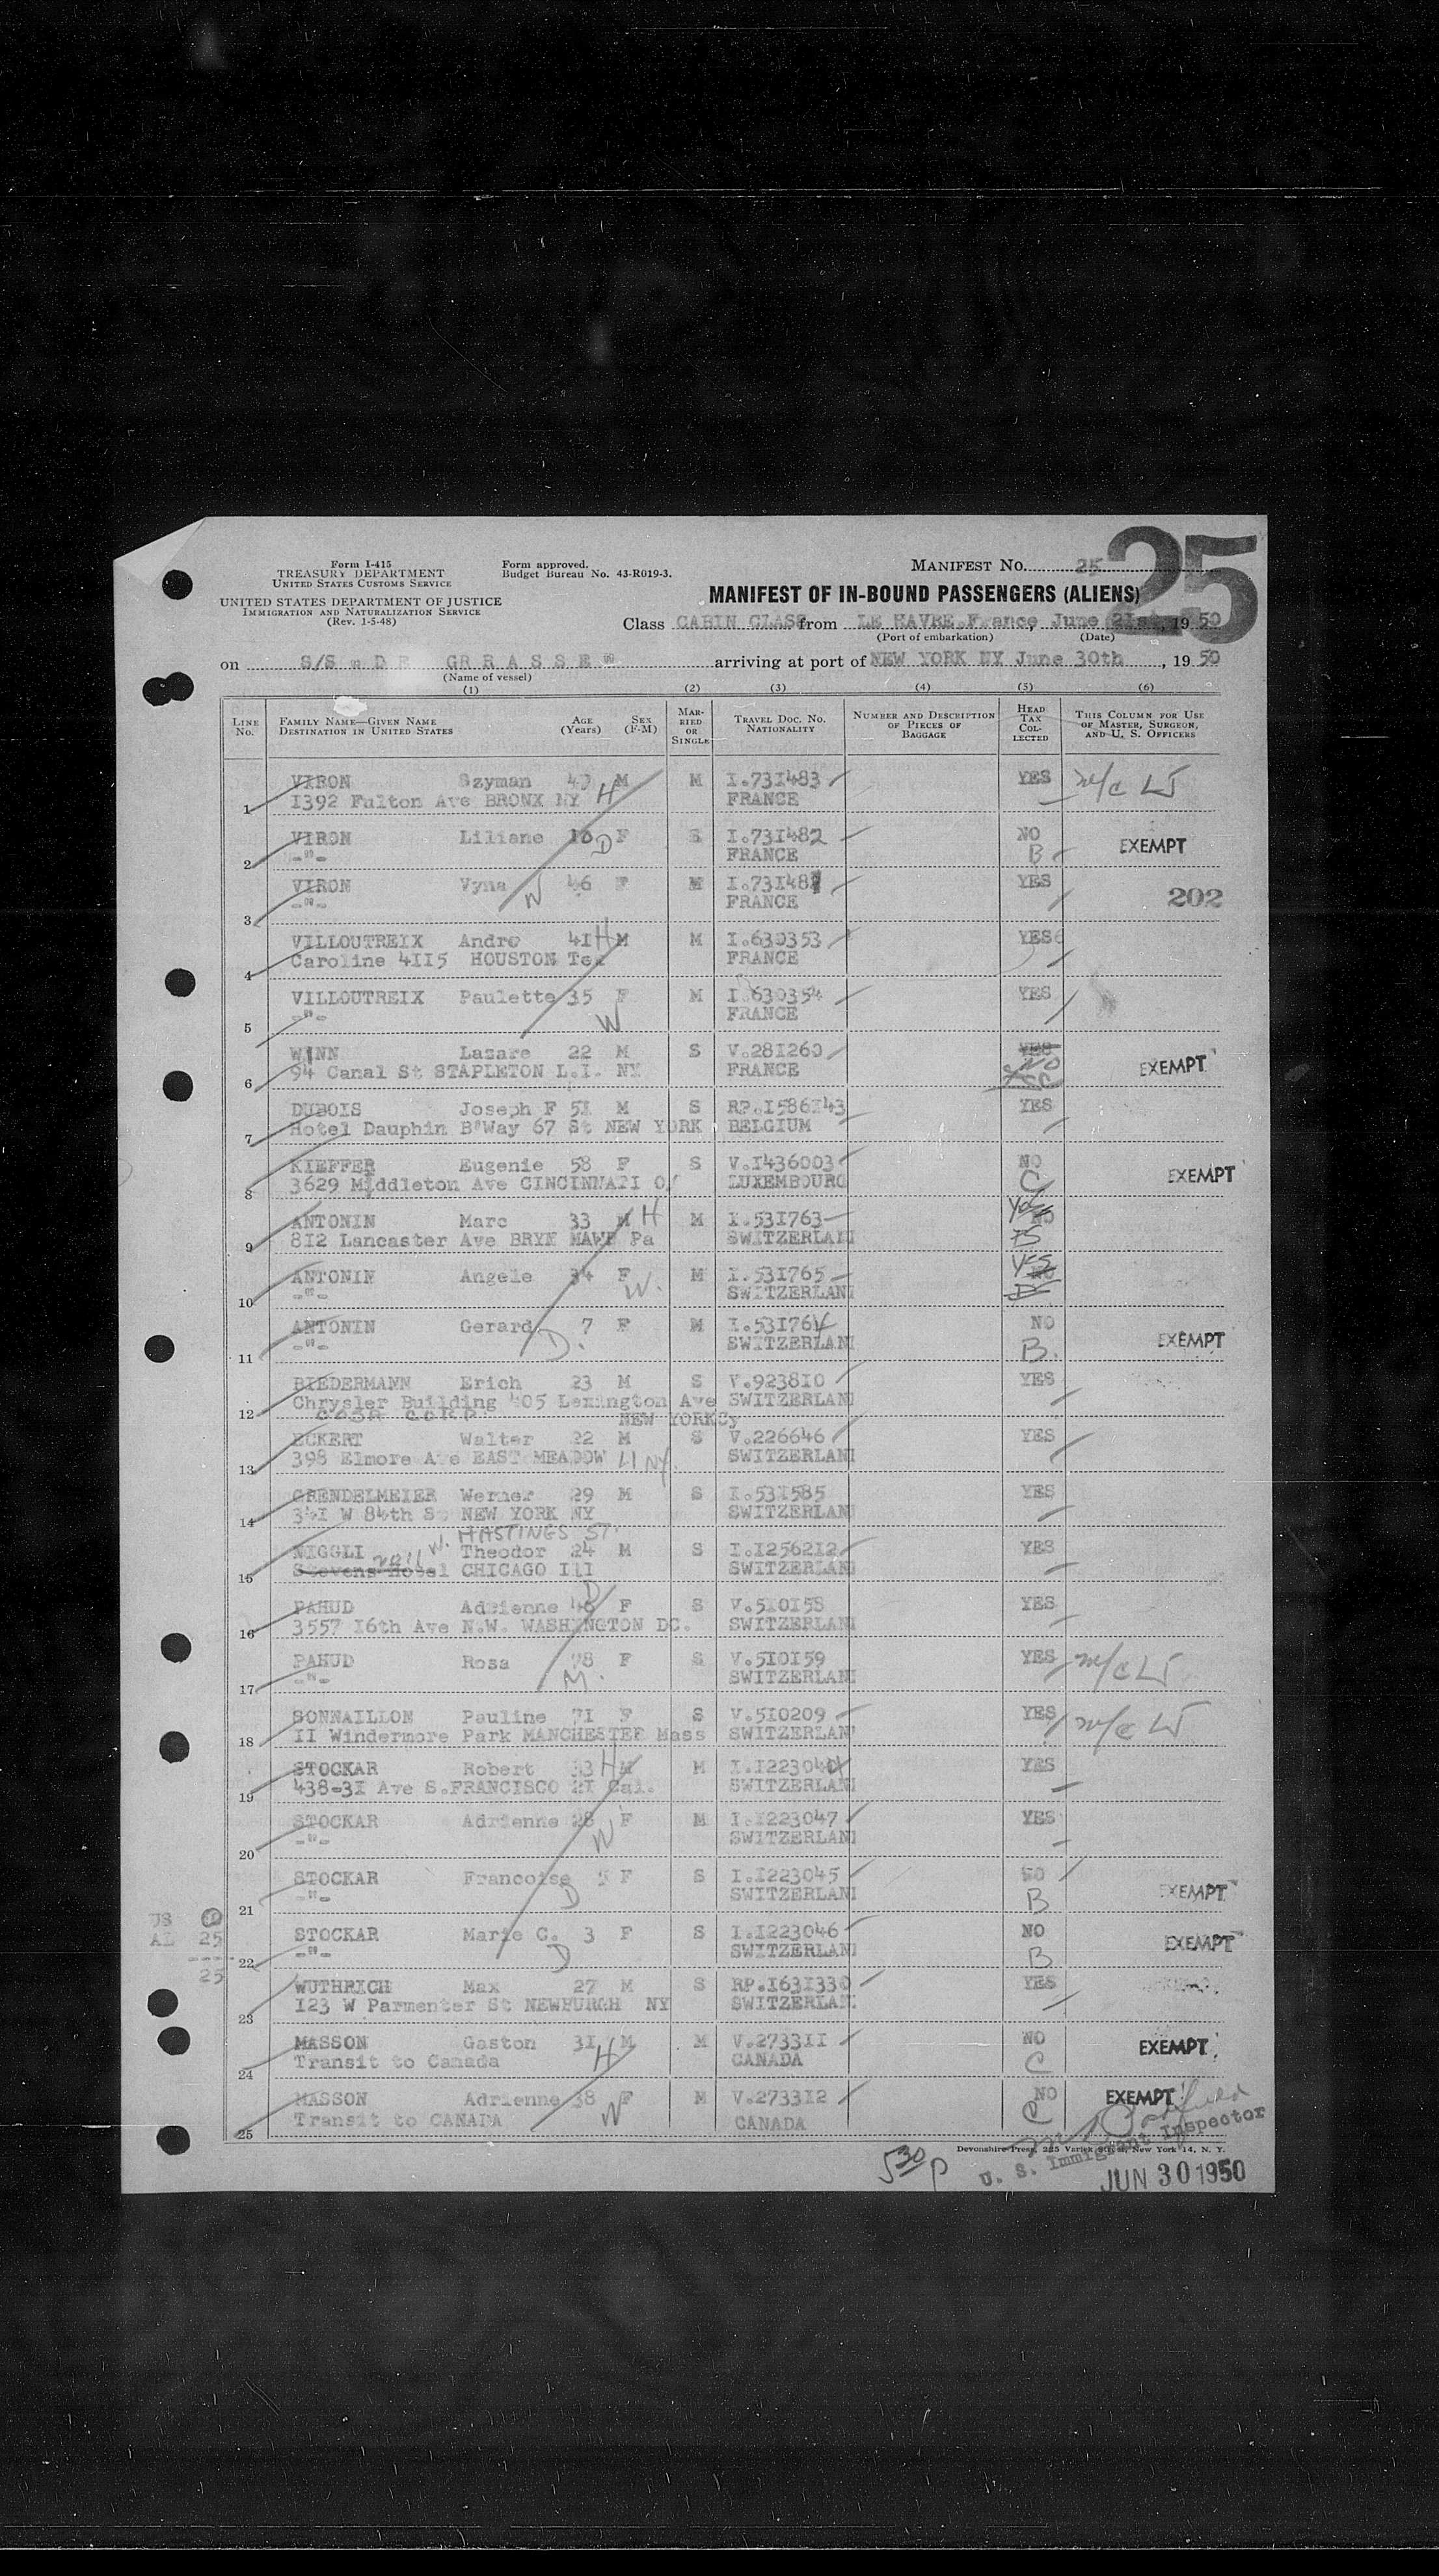 Form I-415
TREASURY DEPARTMENT
UNITED STATES CUSTOMS SERVICE
UNITED STATES DEPARTMENT OF JUSTICE
IMMIGRATION AND NATURALIZATION SERVICE
(Rev. 1-5-48)
Form approved.
Budget Bureau No. 43-R019-3.
MANIFEST No. 25
25
MANIFEST OF IN-BOUND PASSENGERS (ALIENS)
Class CABIN CLASS from LE HAVRE.France, June 21st, 1950
(Port of embarkation) (Date)
on S/S " D E GRRASSE " arriving at port of NEW YORK NY June 30th, 1950
(Name of vessel)
(1) (2) (3) (4) (5) (6)
LINE No. FAMILY NAME—GIVEN NAME DESTINATION IN UNITED STATES AGE (Years) SEX (F-M) MARRIED OR SINGLE TRAVEL DOC. No. NATIONALITY NUMBER AND DESCRIPTION OF PIECES OF BAGGAGE HEAD TAX COLLECTED THIS COLUMN FOR USE OF MASTER, SURGEON, AND U. S. OFFICERS
VIRON Szyman M M I.731483 YES
1 1392 Fulton Ave BRONX NY H FRANCE
VIRON Liliane D F S I.731482 NO
2 -"- FRANCE B EXEMPT
VIRON Vyna W 46 F M YES
3 -"- FRANCE 202
VILLOUTREIX Andre 41 H M M I.630353 YES
4 Caroline 4115 HOUSTON Tex FRANCE
VILLOUTREIX Paulette 35 F M I.630354 YES
5 -"- W FRANCE
WINN Lazare 22 M S V.281260 YES NO
6 94 Canal St STAPLETON L.I. NY FRANCE EXEMPT
DUBOIS Joseph F 51 M S RP.1586143 YES
7 Hotel Dauphin B'Way 67 St NEW YORK BELGIUM
KIEFFER Eugenie 58 F S V.1436003 NO
8 3629 Middleton Ave CINCINNATI O. LUXEMBOURG C EXEMPT
ANTONIN Marc 33 M H M I.531763 Yes NO
9 812 Lancaster Ave BRYN MAWR Pa SWITZERLAND
ANTONIN Angele 34 F M I.531765 YES NO
10 -"- W. SWITZERLAND
ANTONIN Gerard 7 F M I.531764 NO
11 -"- D. SWITZERLAND B. EXEMPT
BIEDERMANN Erich 23 M S V.923810 YES
12 Chrysler Building 405 Lexington Ave SWITZERLAND
NEW YORKCy
ECKERT Walter 22 M S V.226646 YES
13 398 Elmore Ave EAST MEADOW LI NY. SWITZERLAND
GRENDELMEIER Werner 29 M S I.531585 YES
14 341 W 84th St NEW YORK NY SWITZERLAND
W. HASTINGS ST
NIGGLI Theodor 24 M S I.1256212 YES
15 Stevens Hotel CHICAGO Ill SWITZERLAND
PAHUD Adrienne D F S V.510158 YES
16 3557 16th Ave N.W. WASHINGTON DC. SWITZERLAND
PAHUD Rosa 78 F S V.510159 YES
17 -"- M. SWITZERLAND
SONNAILLON Pauline 71 F S V.510209 YES
18 II Windermore Park MANCHESTER Mass SWITZERLAND
STOCKAR Robert 33 H M M YES
19 438-31 Ave S.FRANCISCO 21 Cal. SWITZERLAND
STOCKAR Adrienne 28 F M I.1223047 YES
20 -"- W SWITZERLAND
STOCKAR Francoise F S I.1223045 NO
21 -"- D SWITZERLAND B EXEMPT
STOCKAR Marie C. 3 F S I.1223046 NO
22 -"- D SWITZERLAND B EXEMPT
AL 25
25
WUTHRICH Max 27 M S RP.1631330 YES
23 123 W Parmenter St NEWBURGH NY SWITZERLAND
MASSON Gaston 31 H M M V.273311 NO
24 Transit to Canada CANADA C EXEMPT
MASSON Adrienne 38 F M V.273312 NO EXEMPT
25 Transit to CANADA W CANADA C
Devonshire Press, 225 Varick St., New York 14, N. Y.
530 p
U. S. Immigrant Inspector
JUN 30 1950